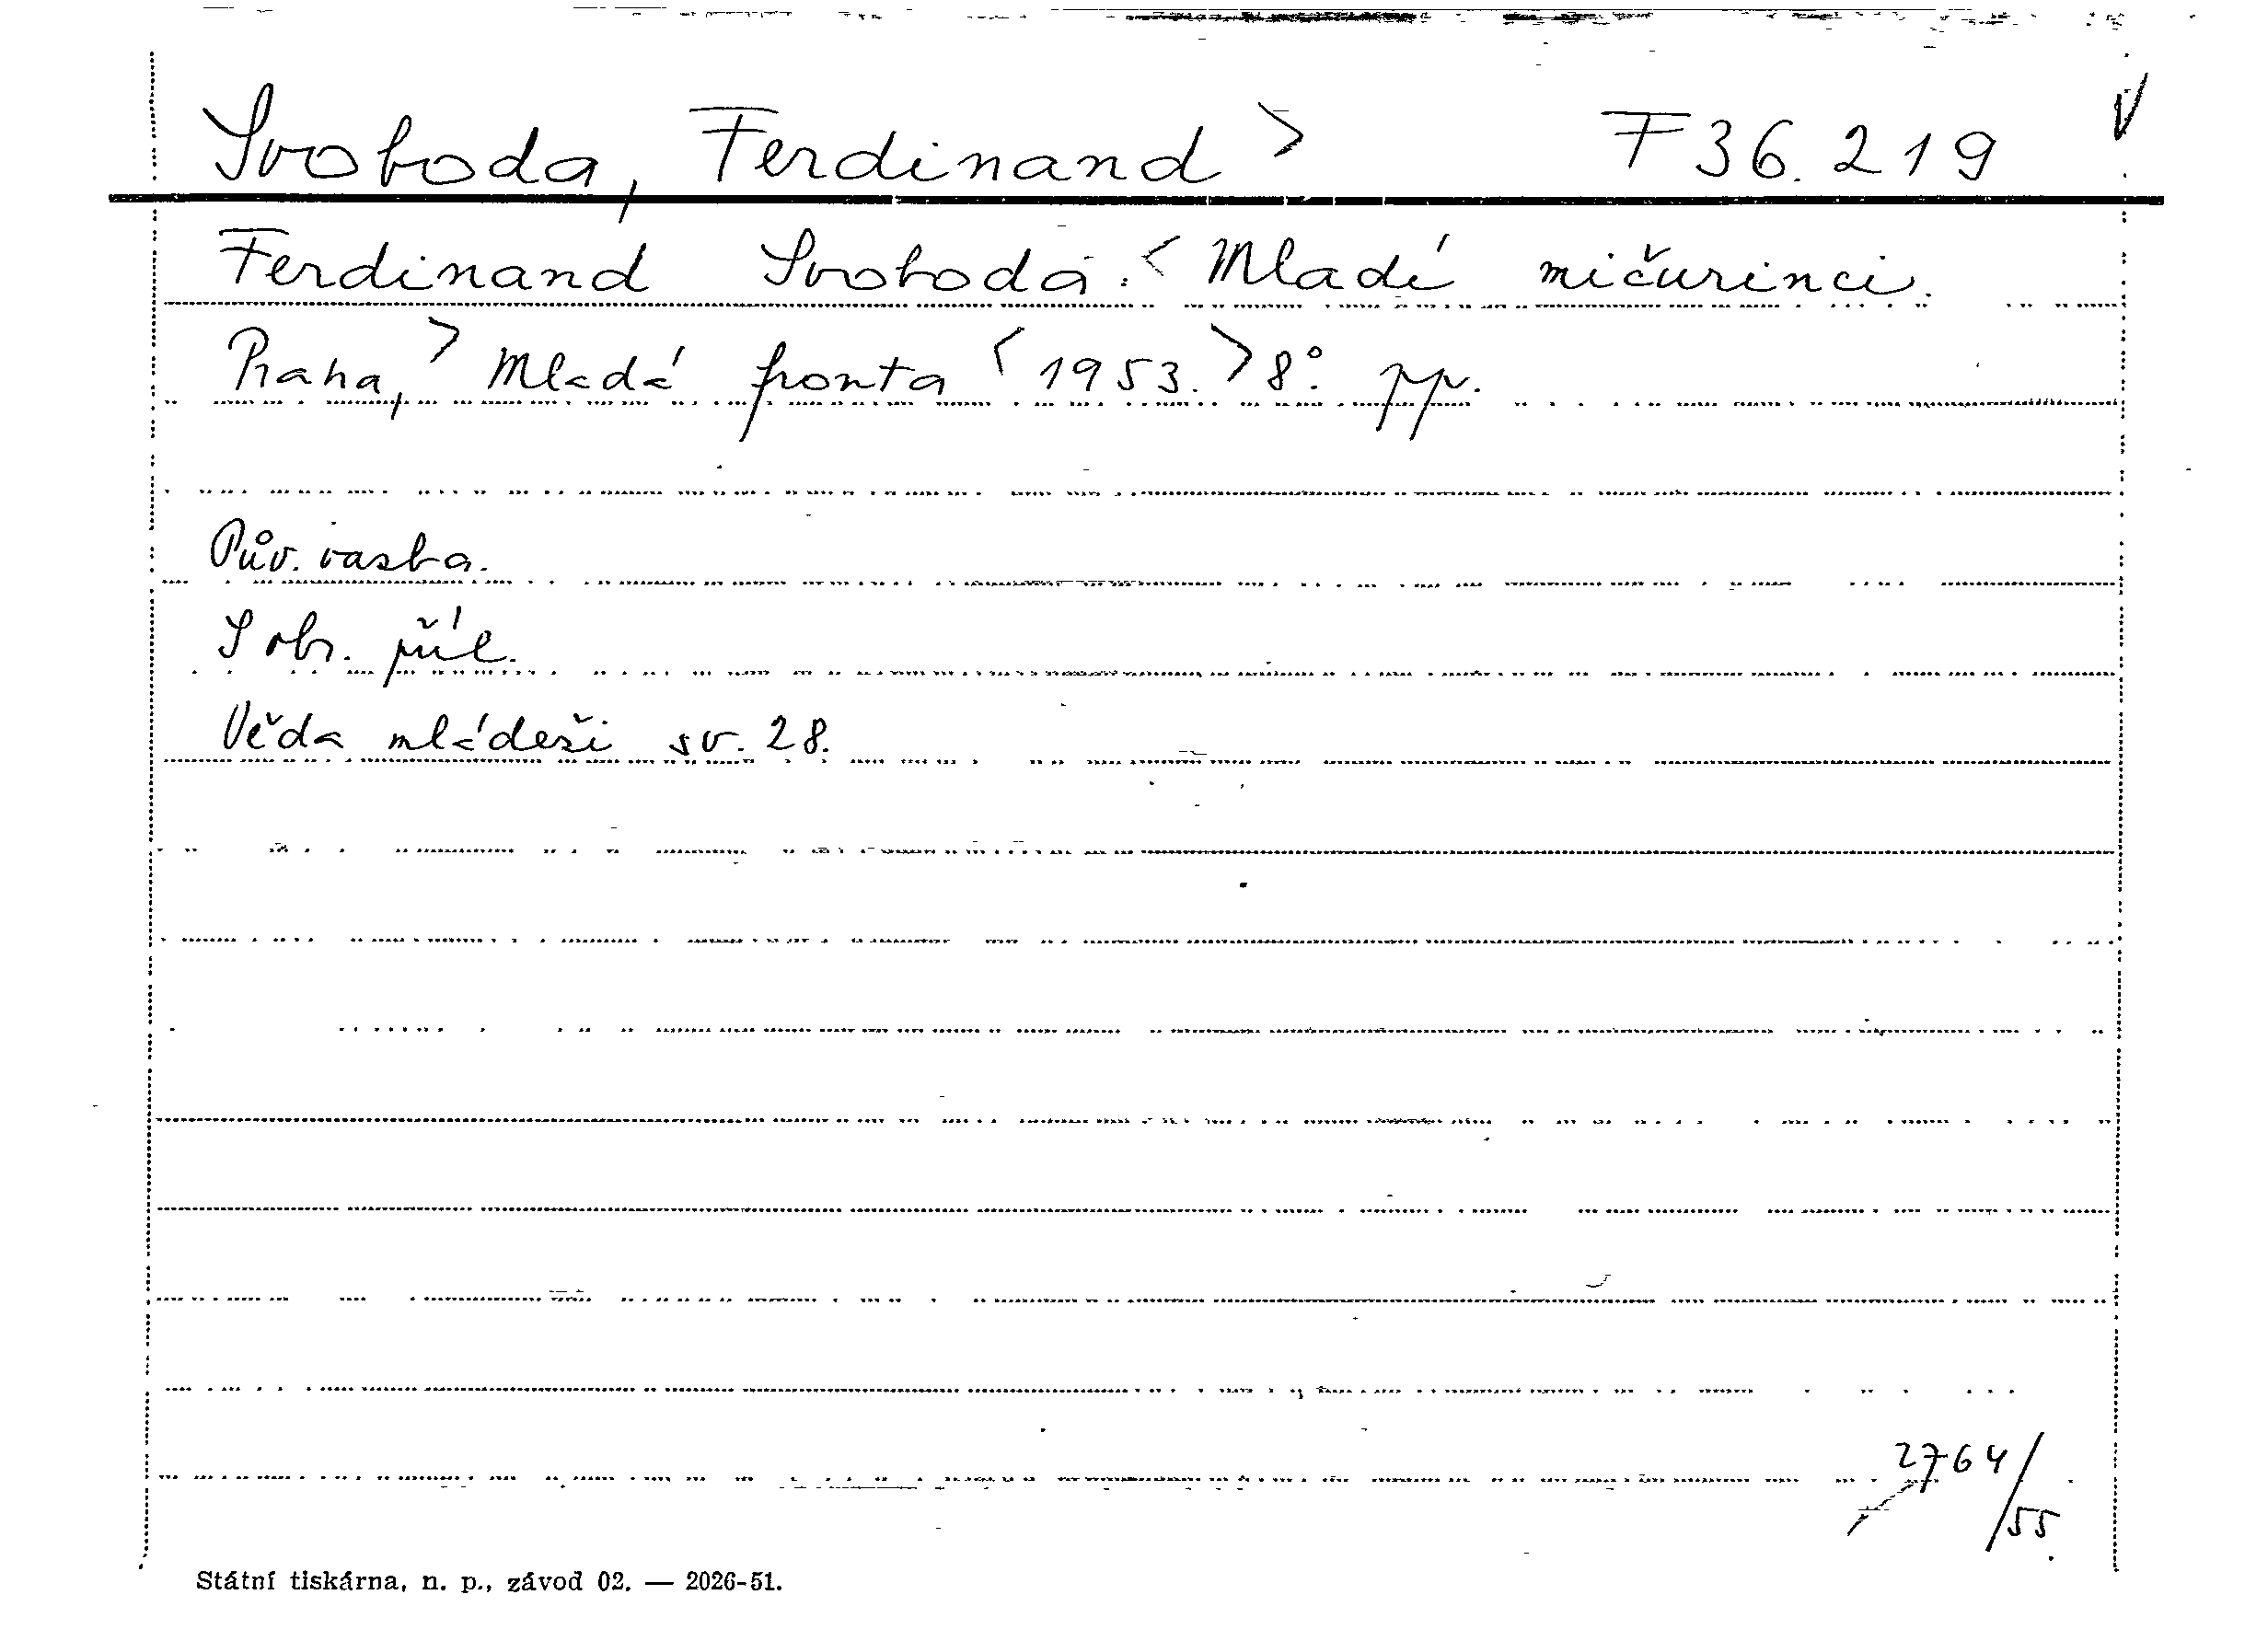 Svoboda, Ferdinand > F 36.219 V
Ferdinand Svoboda: < Mladí mičurinci.
Praha, > Mladá fronta < 1953. > 8°. pp.
Pův. vazba.
S obr. příl.
Věda mládeži sv. 28.
2764/55.
Státní tiskárna, n. p., závod 02. — 2026-51.